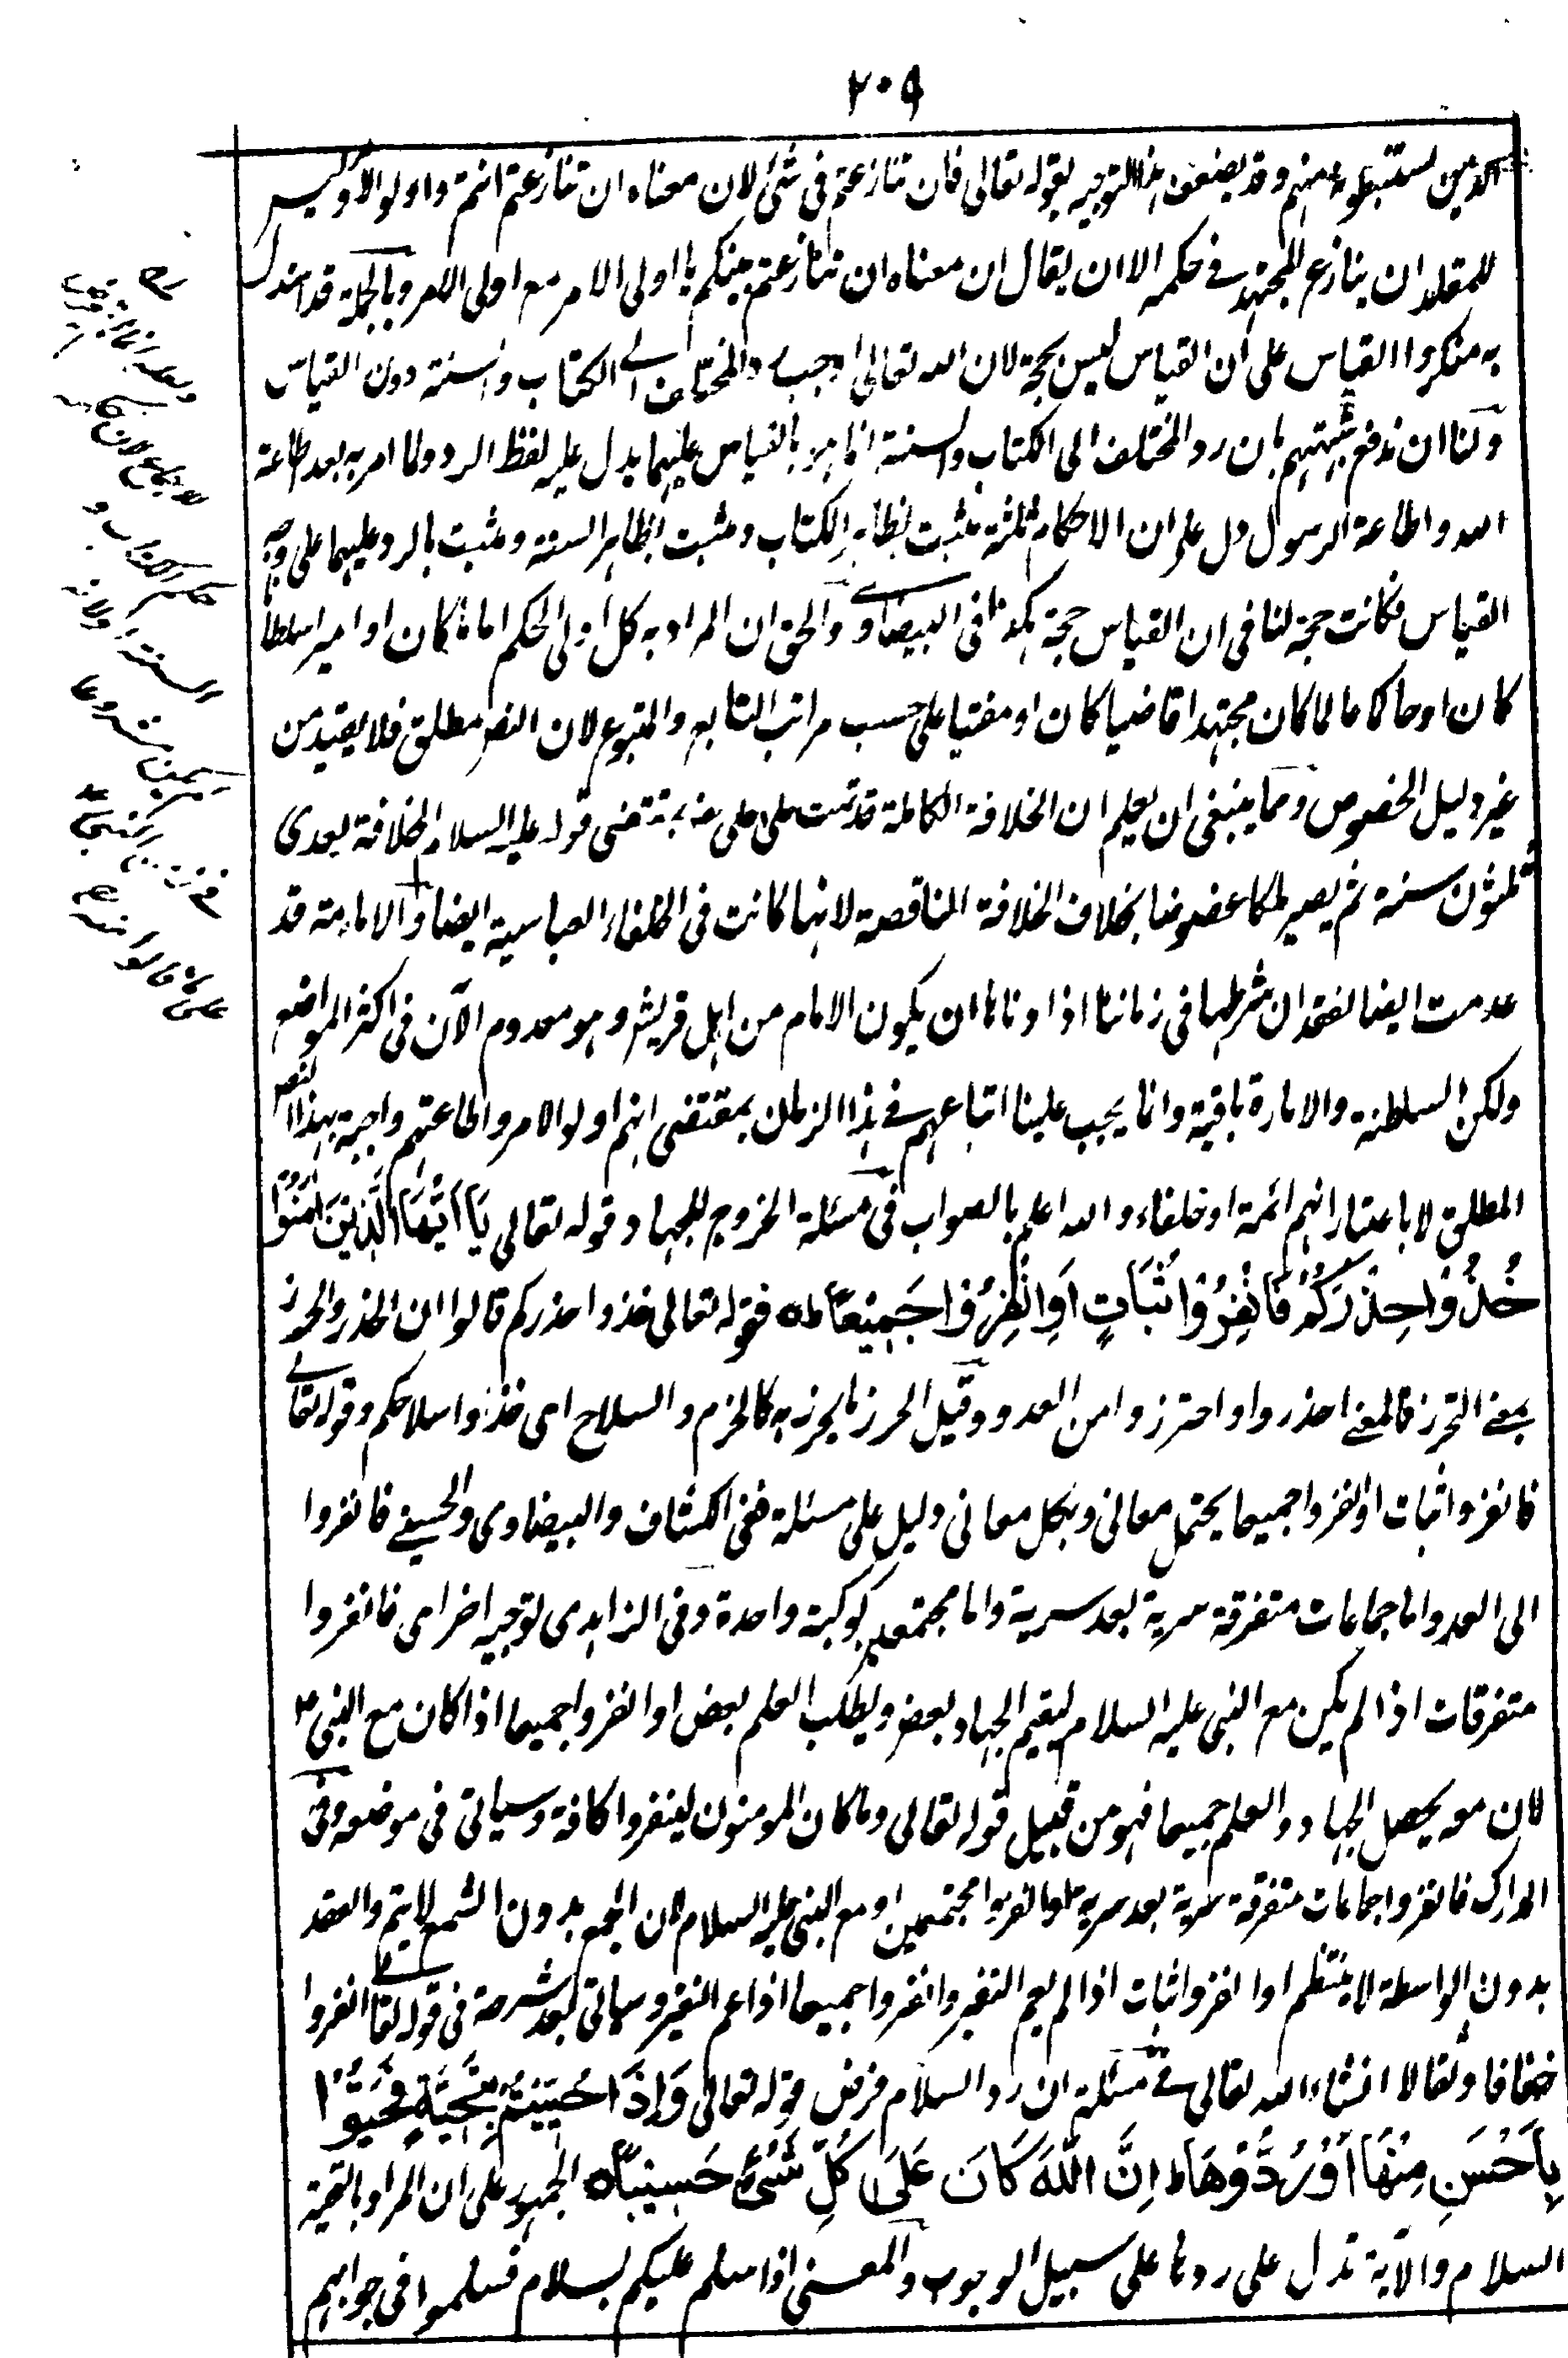 ٢٠٩
الذين يستنبطونه منهم وقد يضعف هذا التوجيه بقوله تعالى فان تنازعتم فى شئ لان معناه ان تنازعتم انتم واولوا الامر وليس
للمقلد ان ينازع المجتهد فى حكمه الا ان يقال ان معناه ان تنازعتم بينكم يا اولى الامر مع اولى الامر وبالجملة قد استدل
به منكروا القياس على ان القياس ليس بحجة لان الله تعالى اوجب رد المختلف الى الكتاب والسنة دون القياس
ولنا ان ندفع شبهتهم بان رد المختلف الى الكتاب والسنة انما هو بالقياس عليهما يدل عليه لفظ الرد ولما امر به بعد طاعة
الله واطاعة الرسول دل على ان الاحكام ثلثة مثبت بظاهر الكتاب ومثبت بظاهر السنة ومثبت بالرد عليهما على وجه
القياس فكانت حجة لنا فى ان القياس حجة هكذا فى البيضاوى والحق ان المراد به كل اولى الحكم اماما كان او اميرا سلطانا
كان او حاكما عالما كان مجتهدا قاضيا كان او مفتيا على حسب مراتب التابع والمتبوع لان النص مطلق فلا يقيد من
غير دليل الخصوص ومما ينبغى ان يعلم ان الخلافة الكاملة قد تمت على على رضـ بمقتضى قوله عليه السلام الخلافة بعدى
ثلثون سنة ثم يصير ملكا عضوضا بخلاف الخلافة الناقصة لانها كانت فى الخلفاء العباسية ايضا والامامة قد
عدمت ايضا لفقدان شرطها فى زماننا اذا ادناها ان يكون الامام من اهل قريش وهو معدوم الآن فى اكثر المواضع
ولكن السلطنة والامارة باقية وانما يجب علينا اتباعهم فى هذا الزمان بمقتضى انهم اولوا الامر واطاعتهم واجبة بهذا النص
المطلق لا باعتبار انهم ائمة او خلفاء والله اعلم بالصواب فى مسئلة الخروج للجهاد قوله تعالى يَا اَيُّهَا الَّذِيْنَ اٰمَنُوْا
خُذُوْا حِذْرَكُمْ فَانْفِرُوْا ثُبَاتٍ اَوِ انْفِرُوْا جَمِيْعًا ط٥ فقوله تعالى خذوا حذركم قالوا ان الحذر والحرز
بمعنى التحرز فالمعنى احذروا واحترزوا من العدو وقيل الحرز ما يحرز به كالحزم والسلاح اى خذوا سلاحكم وقوله تعالى
فانفروا ثبات او انفروا جميعا يحتمل معانى وبكل معانى دليل على مسئلة ففى الكشاف والبيضاوى والحسينى فانفروا
الى العدو اما جماعات متفرقة سرية بعد سرية واما مجتمعين كوكبة واحدة وفى الزاهدى توجيه اخر اى فانفروا
متفرقات اذا لم يكن مع النبى عليه السلام ليقيم الجهاد بعض ويطلب العلم بعض او انفروا جميعا اذا كان مع النبى ؑ
لان معه يحصل الجهاد والعلم جميعا فهو من قبيل قوله تعالى وما كان المومنون لينفروا كافة وسياتى فى موضعه وفى
المدارك فانفروا جماعات متفرقة سرية بعد سرية او انفروا مجتمعين او مع النبى عليه السلام لان الجمع بدون الشمع لا يتم والعقد
بدون الواسطة لا ينتظم او انفروا ثبات اذا لم يعم النفير وانفروا جميعا اذا عم النفير وسياتى بعد شرحة فى قوله تعا انفروا
خفافا وثقالا انشاء الله تعالى فى مسئلة ان رد السلام فرض قوله تعالى وَاِذَا حُيِّيْتُمْ بِتَحِيَّةٍ فَحَيُّوْا
بِاَحْسَنَ مِنْهَا اَوْ رُدُّوْهَا ط اِنَّ اللهَ كَانَ عَلٰى كُلِّ شَىْءٍ حَسِيْبًا٥ الجمهور على ان المراد بالتحية
السلام والآية تدل على ردها على سبيل الوجوب والمعنى اذا سلم عليكم بسلام فسلموا فى جوابهم
حكم الكتاب و
السنة
على ما قالوا